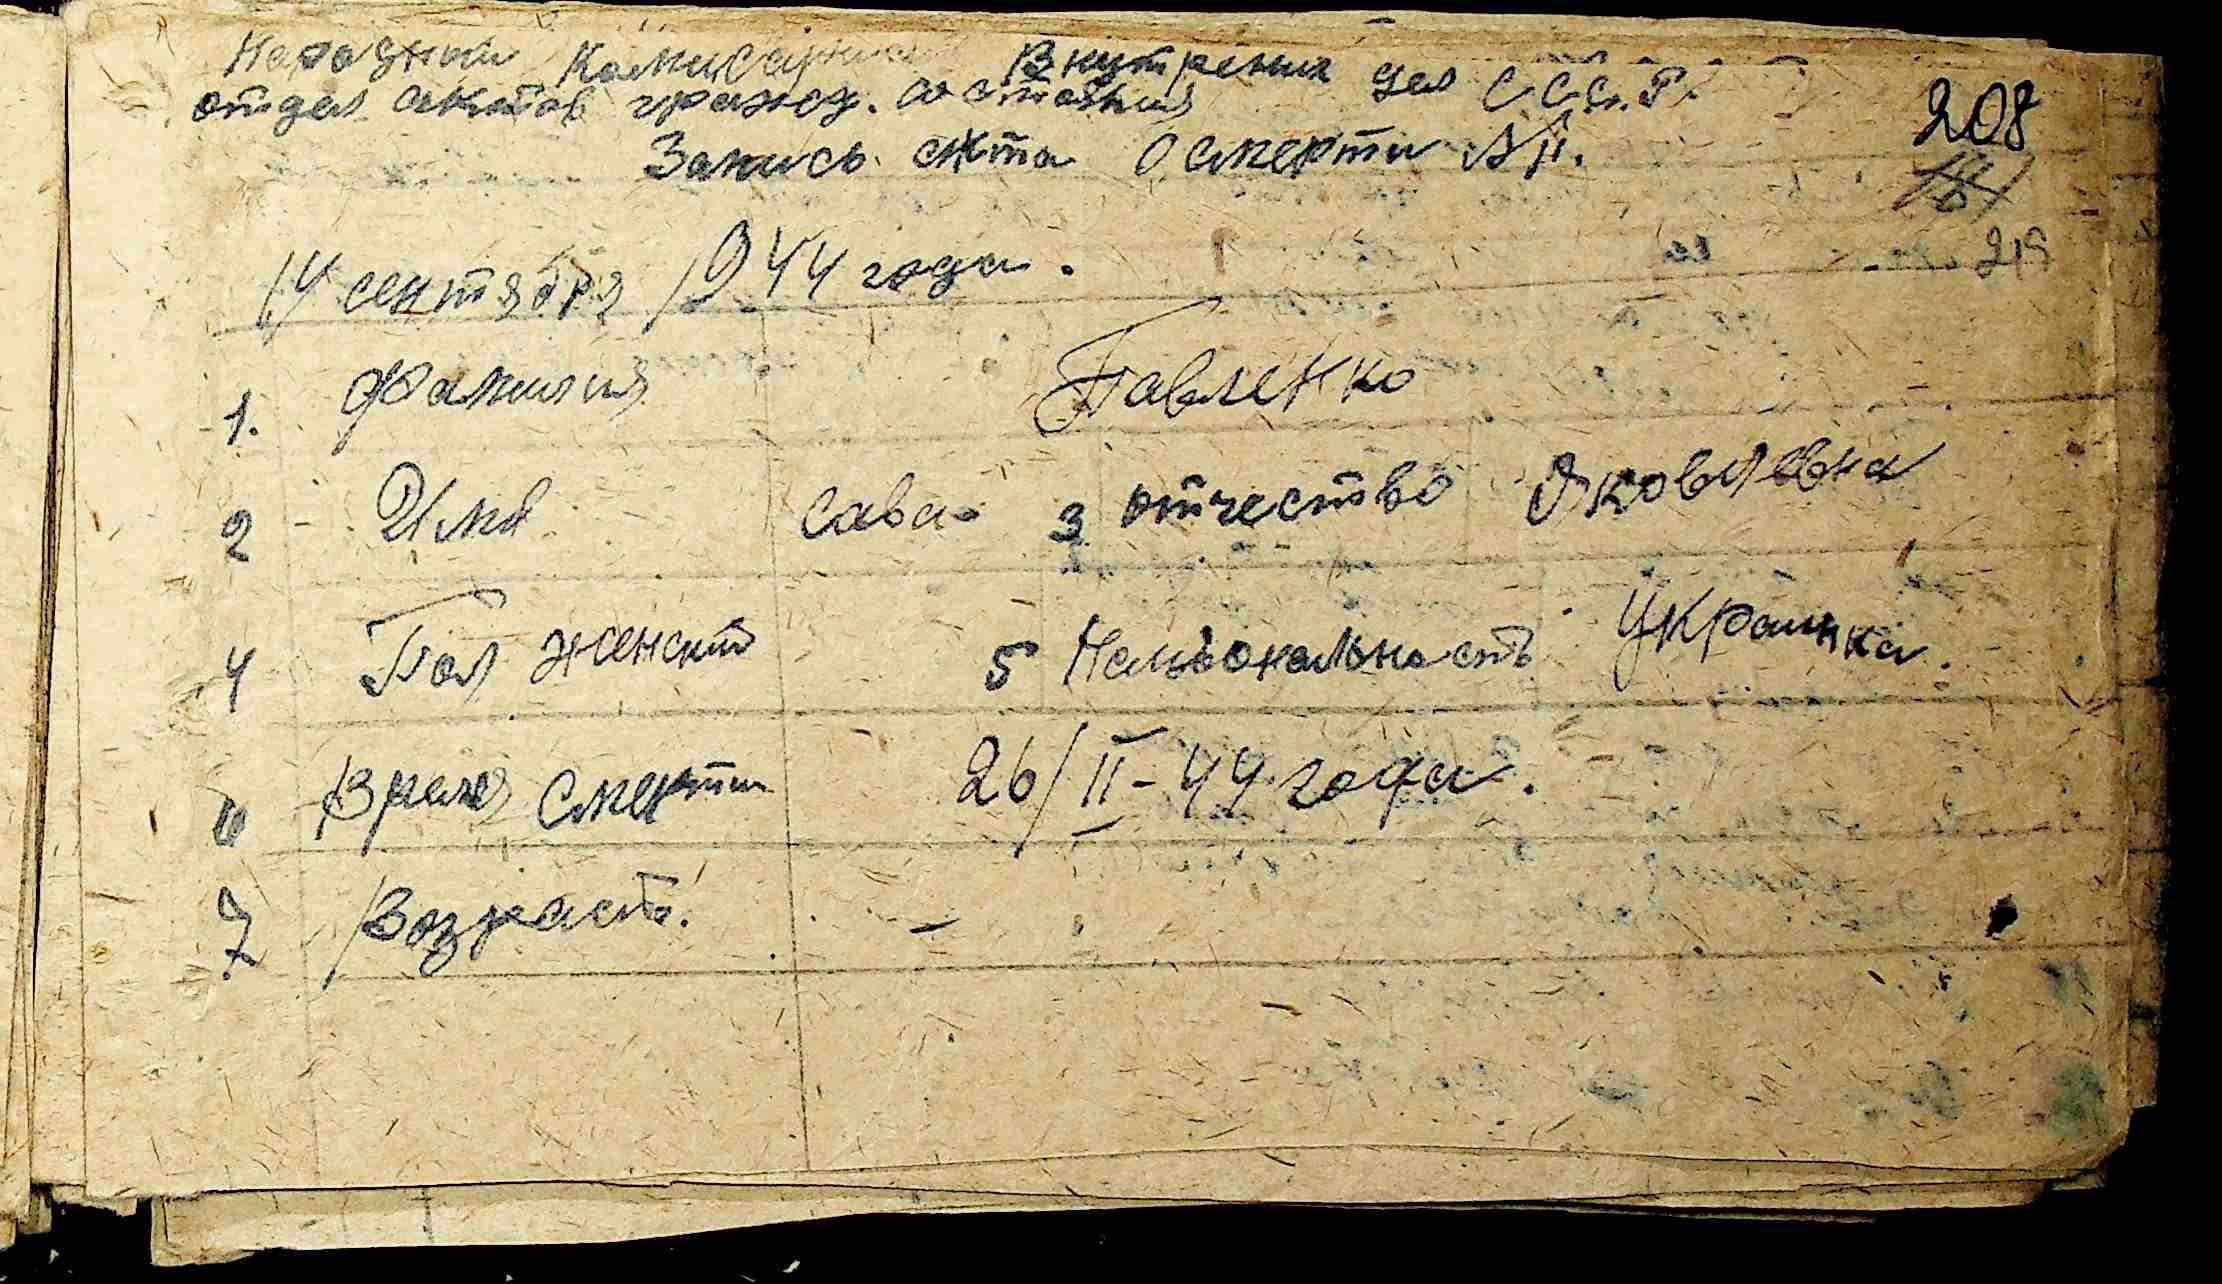 Народной Комисариат Внутрених дел С.С.С.Р.
отдел актов гражд. состояния
208
Запись акта о смерти № 11.
219
14 сентября 1944 года.
1. Фамилия Павленко
2 Имя Сава 3 отчество Яковлевна
4 Пол женский 5 Национальность Украинка.
6 Время смерти 26/II-44 года.
7. Возраст. –